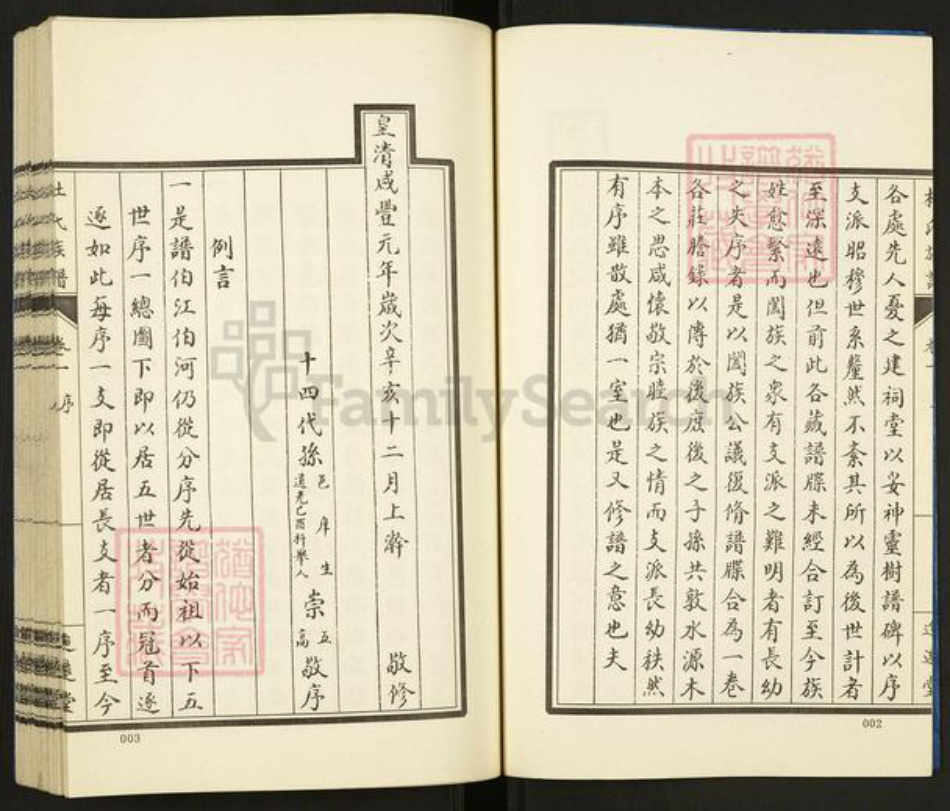 各處先人憂之建祠堂以妥神靈樹譜碑以序
支派昭穆世系釐然不紊其所以為後世計者
至深遠也但前此各藏譜牒未經合訂至今族
姓愈繁而闔族之衆有支派之難明者有長幼
之失序者是以闔族公議復脩譜牒合為一卷
各莊謄錄以傳於後庶後之子孫共敦水源木
本之思咸懷敬宗睦族之情而支派長幼秩然
有序雖散處猶一室也是又修譜之意也夫
002
皇清咸豐元年歲次辛亥十二月上澣 敬修
十四代孫
邑庠生
道光己酉科舉人
崇
五
高
敬序
例言
一是譜伯江伯河仍從分序先從始祖以下五
世序一總圖下即以居五世者分而冠首逐
逐如此每序一支即從居長支者一序至今
杜氏族譜 卷一 序
003
FamilySearch